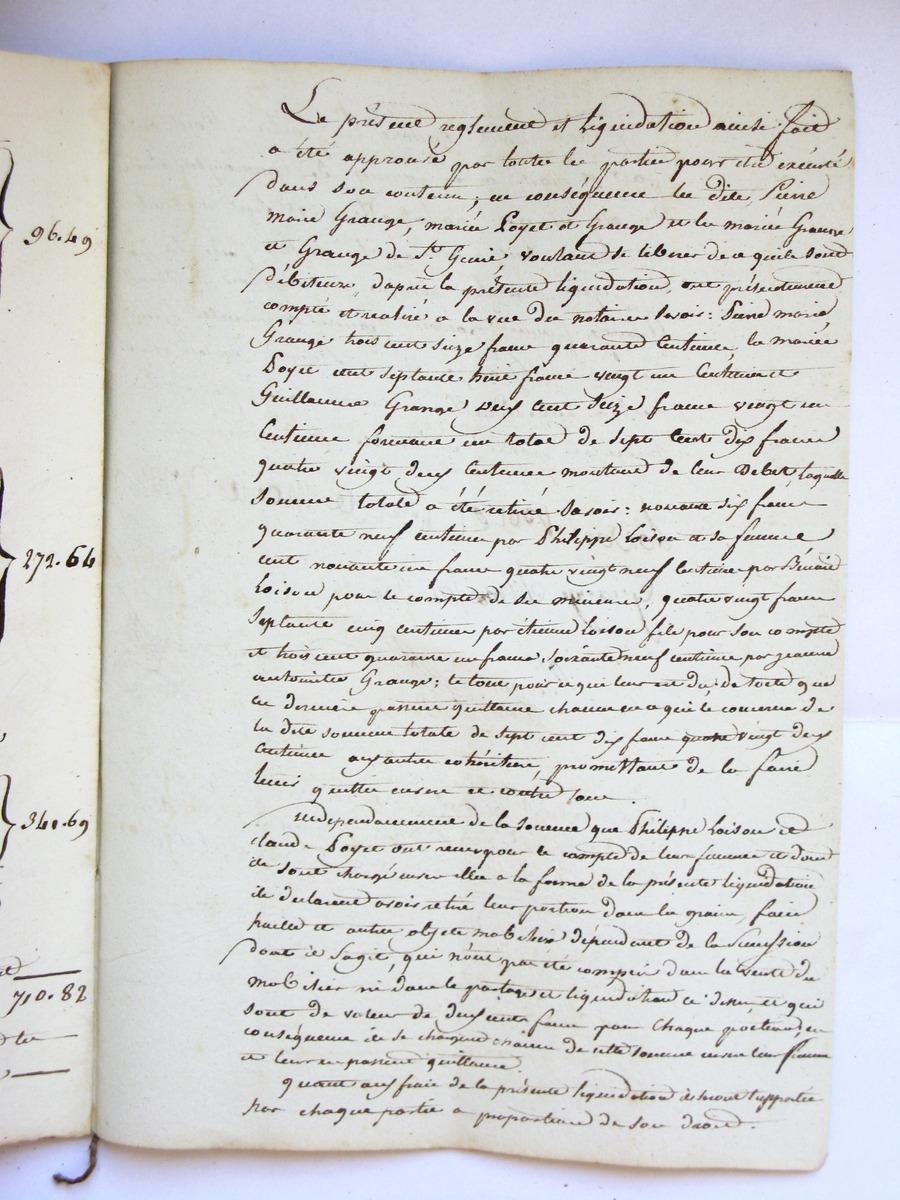 96.49
272.64
341.69
710.82
Le présent reglement et liquidation ainsi fait
a été approuvé par toutes les parties pour etre exécuté
dans son contenu; en conséquence les dits Pierre
marie Grange, mariés Poyet et Grange et les mariés Grange
et Grange de St. Genié voulant se liberer de ce quils sont
Débiteurs, daprès la présente liquidation, ont présentement
compté et realisé a la vue du notaire savoir: Pierre marie
Grange trois cent seize francs quarante Centimes, les mariés
Poyet cent septante huit francs vingt un Centimes et
Guillaume Grange deux cent seize francs vingt un
Centimes formant un total de sept Cent dix francs
quatre vingt deux Centimes montant de leur Debet, laquelle
somme totale a été retiré savoir: nonante six francs
quarante neuf centimes par Philippe Loison et sa femme
cent nonante un francs quatre vingt neuf centimes par Bénoit
Loison pour le compte de ses mineurs, quatre vingt francs
septante cinq centimes par étienne Loison fils pour son compte
et trois cent quarante un francs soixante neuf centimes par jeanne
antoinette Grange; le tout pour ce qui leur est du; de sorte que
ces derniers passent quittance chacun en ce qui le concerne de
la dite somme totale de sept cent dix francs quatre vingt deux
Centimes aux autres cohéritiers, promettant de les faire
tenir quittes envers et contre tous.
independamment de la somme que Philippe Loison et
claude Poyet ont reçus pour le compte de leurs femmes et dont
ils se sont chargés envers elles a la forme de la présente liquidation
ils declarent avoir retiré leur portion dans les grains, foin
paille et autres objets mobiliers dépendant de la Succession
dont il Sagit, qui n'ont pas été compris dans la vente du
mobilier ni dans le partage et liquidation ci dessus et qui
sont de valeur de deux cents francs pour chaque portion, en
conséquence ils se chargent chacun de cette somme envers leur femme
et leur en passent quittance.
quant aux frais de la présente liquidation ils seront supportés
par chaque partie a proportion de son droit.